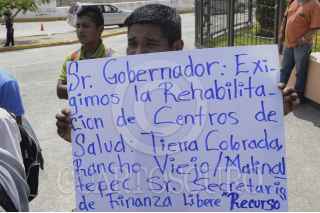 Sr. Gobernador: Exi-
gimos la Rehabilita-
cion de Centros de
Salud: Tierra Colorada,
Rancho Viejo/Malinal
tepec. Sr. Secretario
de Finanza libere "Recurso